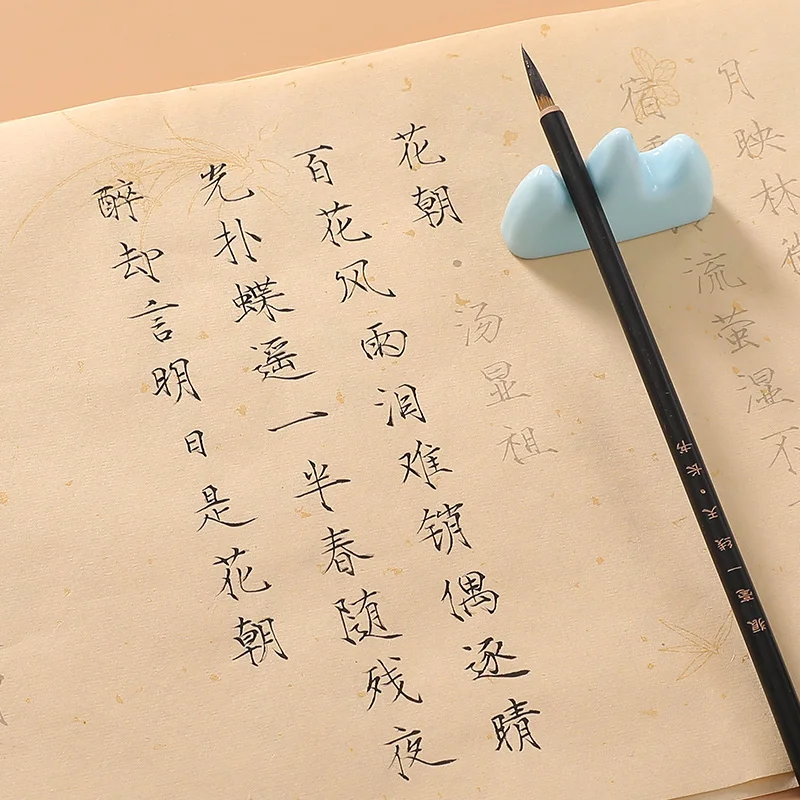 月映林
宿
流萤湿不
花朝
汤显祖
百花风雨泪难销偶逐晴
光扑蝶遥一半春随残夜
醉却言明日是花朝
狼毫一线天·长书